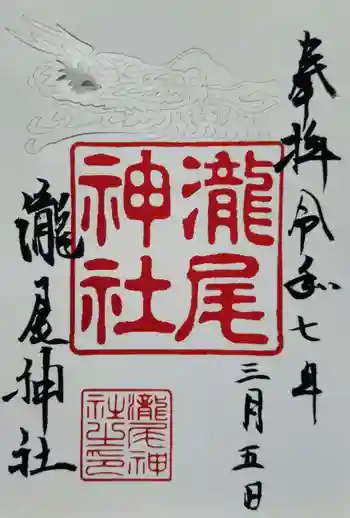 奉拝 令和七年
三月五日
瀧尾
神社
瀧尾神
社之印
瀧尾神社